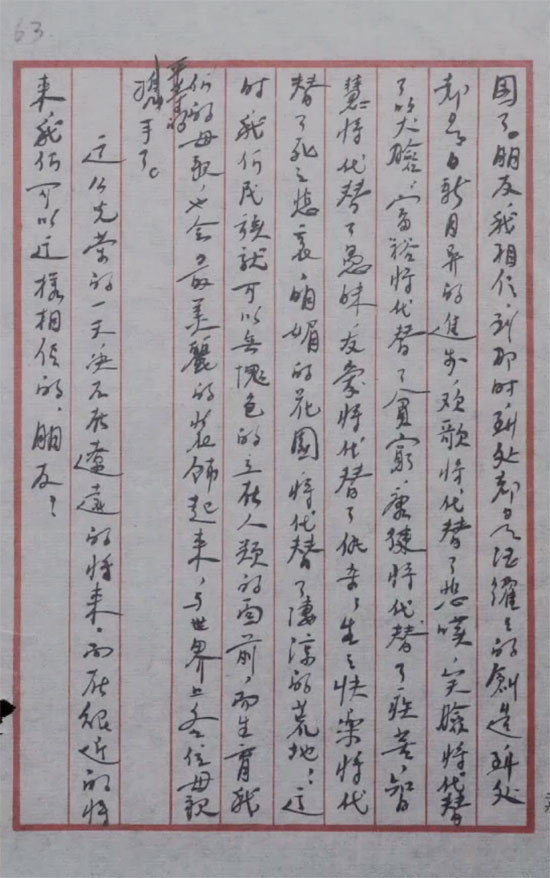 63.
国了。朋友，我相信，到那时，到处都是活耀々的創造，到处
都是日新月异的進步，欢歌将代替了悲嘆，笑臉将代替
了哭臉，富裕将代替了貧窮，康健将代替了疾苦，智
慧将代替了愚昧，友愛将代替了仇杀，生之快樂将代
替了死之悲哀，明媚的花園，将代替了凄涼的荒地！這
时，我们民族就可以無愧色的立在人類的面前，而生育我
们的母親，也会最美麗的裝飾起来，与世界上各位母親
平等的携手了。
这么光荣的一天，决不在遼遠的将来，而在很近的将
来，我们可以这樣相信的，朋友！